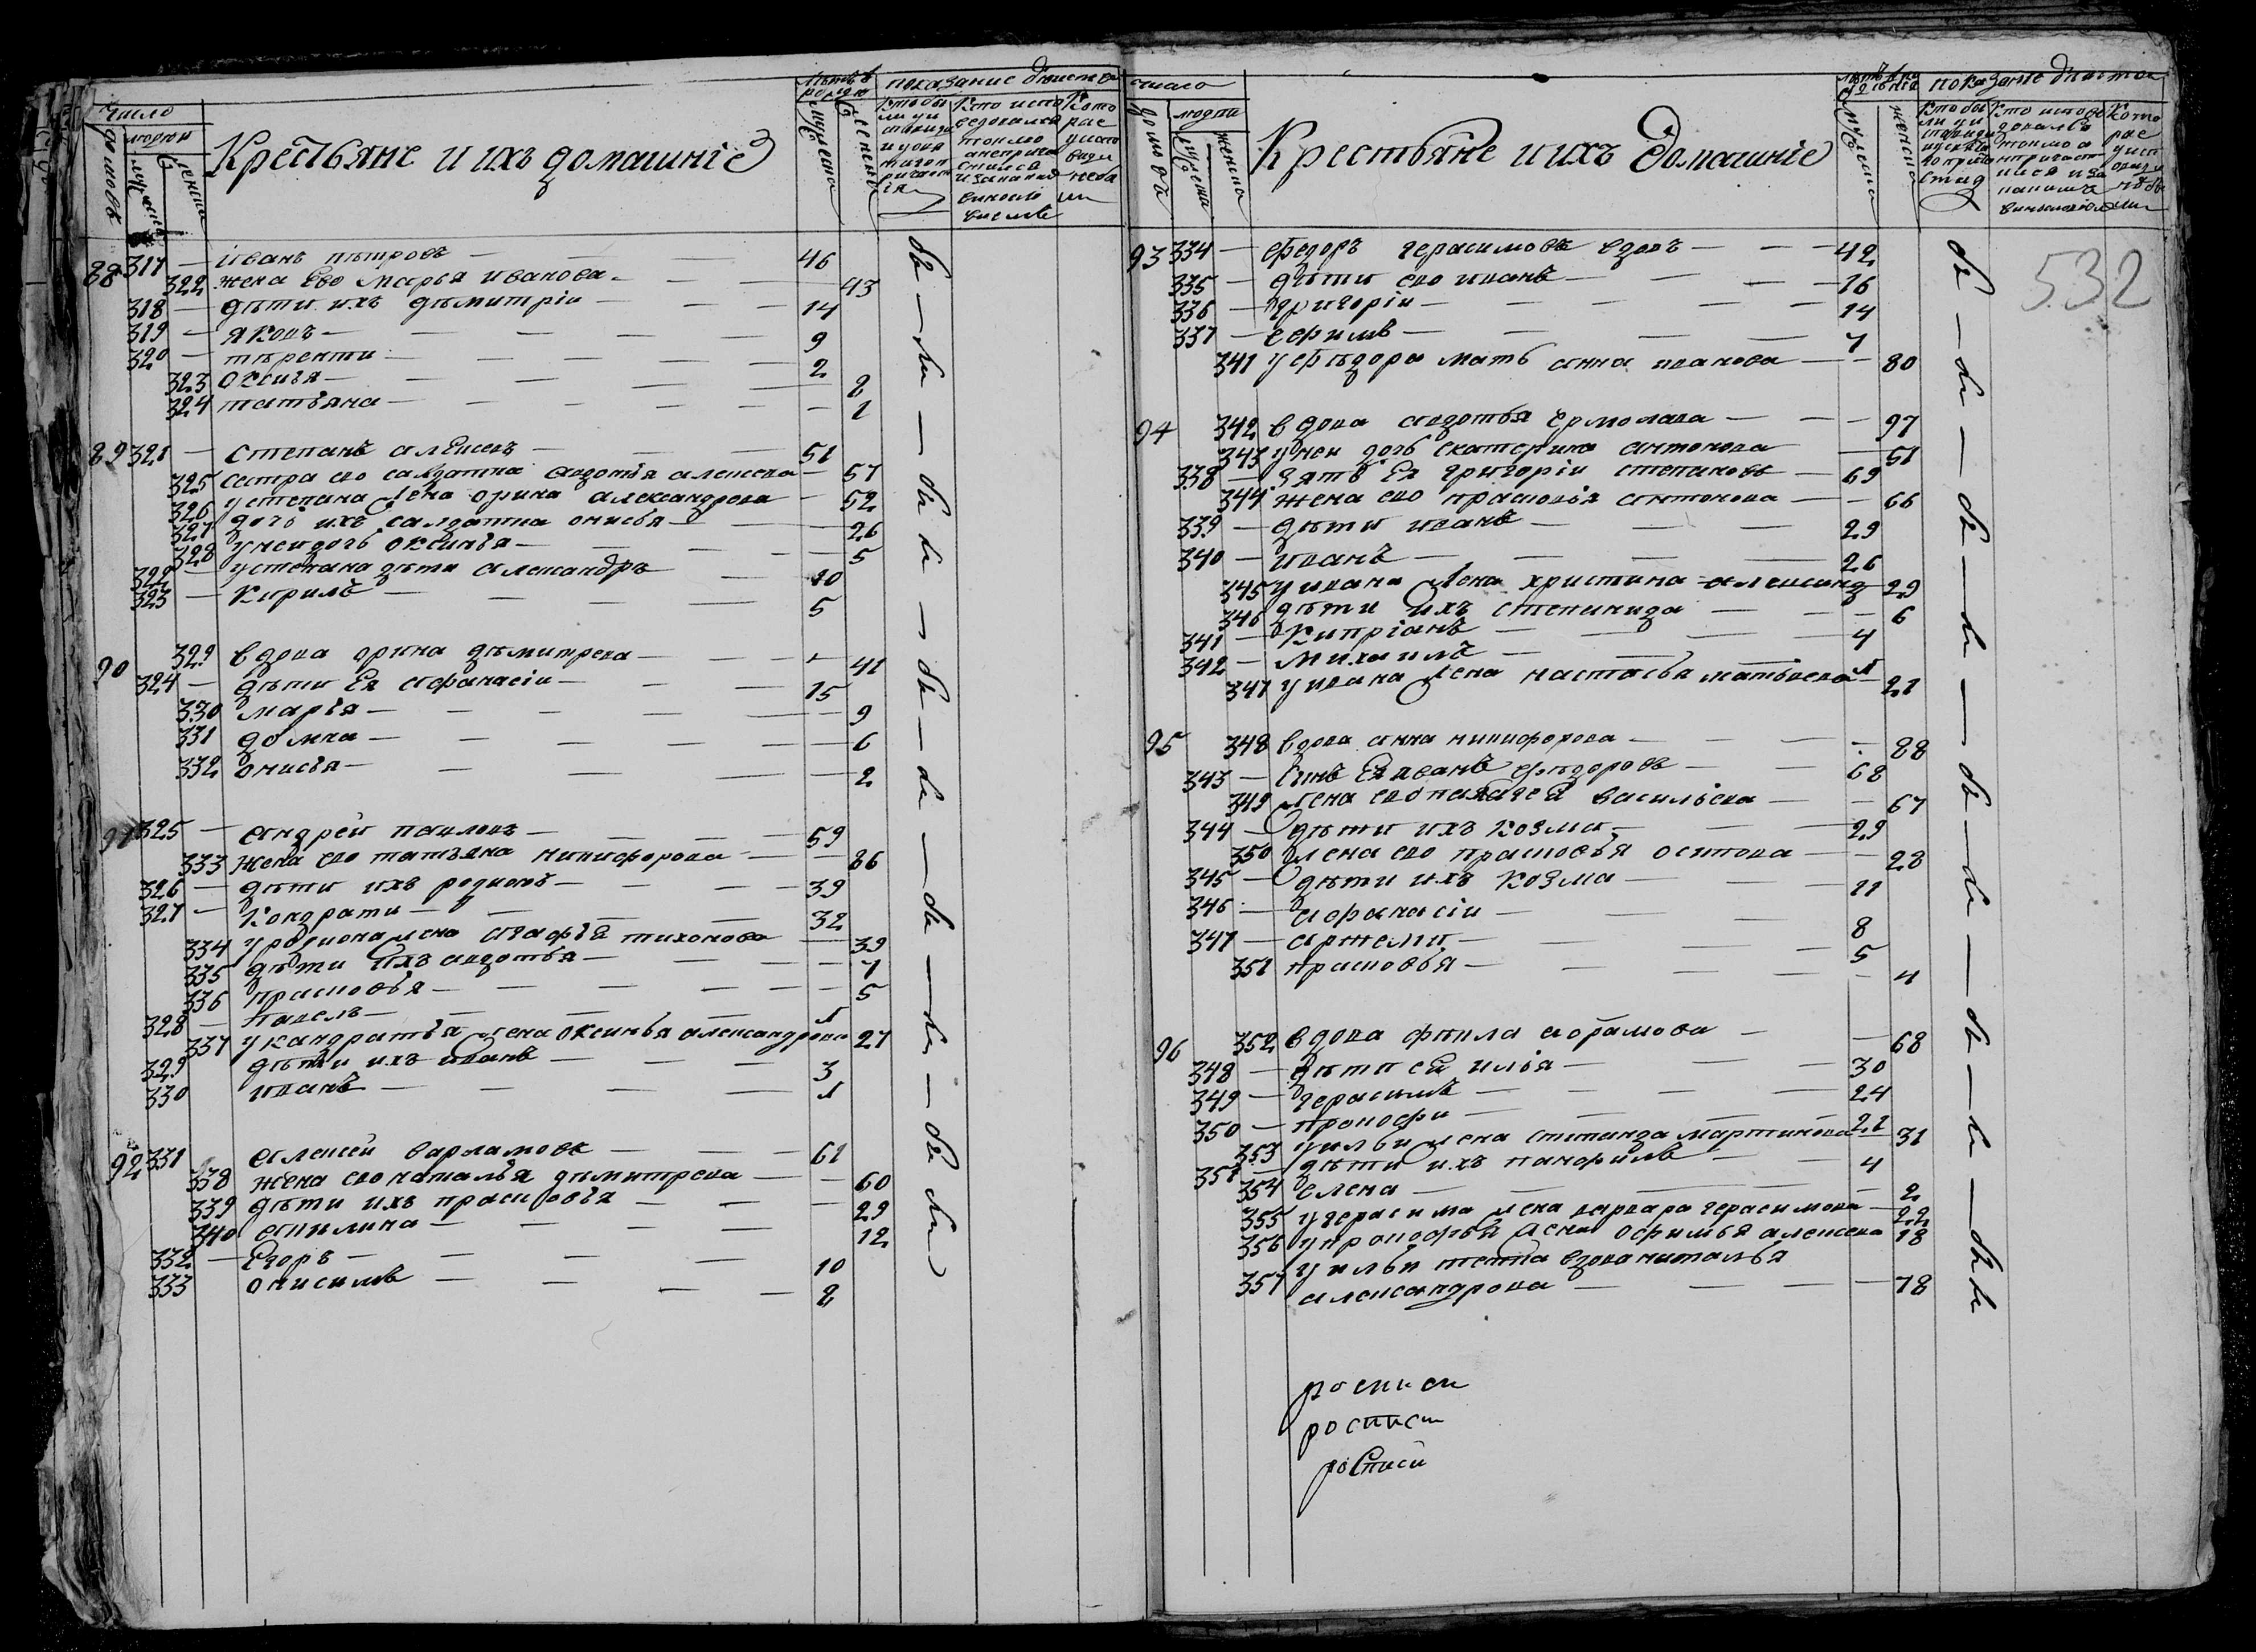 Число
людей
домовъ
мужеска
женска
Крестьяне и ихъ домашніе
мужеска
женска
показание
88 317 — иванъ пѣтровъ — 46
322 жена Ево марья иванова — 43
318 — дѣти ихъ дѣмитріи — 14
319 — яковъ — 9
320 — тѣренти — 2
323 оксинья — 8
324 татьяна — 1
89 321 — степанъ алексеевъ — 51
325 сестра ево салдатка авдотья алексеева — 57
326 у степана жена орина александрова — 52
327 дочь ихъ салдатка онисья — 26
328 у неи дочь оксинья — 5
322 — у степана дѣти александръ — 10
323 — Кирилъ — 5
90 329 вдова орина дѣмитрева — 41
324 — дѣти Ея афанасіи — 15
330 марія — 9
331 домна — 6
332 онисья — 2
91 325 — андрей павловъ — 59
333 жена ево татьяна никифорова — 86
326 — дѣти ихъ родионъ — 39
327 — Кондрати — 32
334 у родиона жена агафья тихонова — 39
335 дѣти ихъ авдотья — 7
336 прасковья — 5
328 — павелъ — 1
337 у кандратья жена оксинья александрова 27
329 дѣти ихъ иванъ — 3
330 иванъ — 1
92 331 алексей варламовъ — 61
338 жена ево наталья дѣмитрева — 60
339 дѣти ихъ прасковья — 29
340 акилина — 12
332 — Егоръ — 10
333 онисимъ — 2
число
домовъ
людей
мужеска
женска
Крестьяне и ихъ домашніе
мужеска
женска
показание
532
93 334 — ѳедоръ герасимовъ вдовъ — 42
335 — дѣти ево иванъ — 16
336 — григоріи — 14
337 — ефимъ — 7
341 у ѳѣдора мать анна иванова — 80
94 342 вдова авдотья ермолаева — 97
343 у неи дочь екатерина антонова — 51
338 — зять Ея григоріи степановъ — 69
344 жена ево прасковья антонова — 66
339 — дѣти иванъ — 29
340 — иванъ — 26
345 у ивана жена христина александ 29
346 дѣти ихъ степанида — 6
341 — Кипріанъ — 4
342 — михаилъ — 1
347 у ивана жена настасья матвѣева — 21
95 348 вдова анна никифорова — 88
343 — сынъ Ея иванъ ѳѣдоровъ — 68
349 жена ево пелагея василѣва — 67
344 — дѣти ихъ козма — 29
350 жена ево прасковья осипова — 28
345 — дѣти ихъ козма — 11
346 — афанасіи — 8
347 — артеми — 5
351 прасковья — 4
96 352 вдова фѣкла абрамова — 68
348 — дѣти ея илья — 30
349 — герасимъ — 24
350 — прокофи — 21
353 у ильи жена степанида мартинова — 31
351 — дѣти ихъ панфилъ — 4
354 елена — 2
355 у герасима жена варвара герасимова — 22
356 у прокофья жена офимья алексеева 18
357 у ильи тетка вдова наталья
александрова — 78
росписи
росписи
росписи